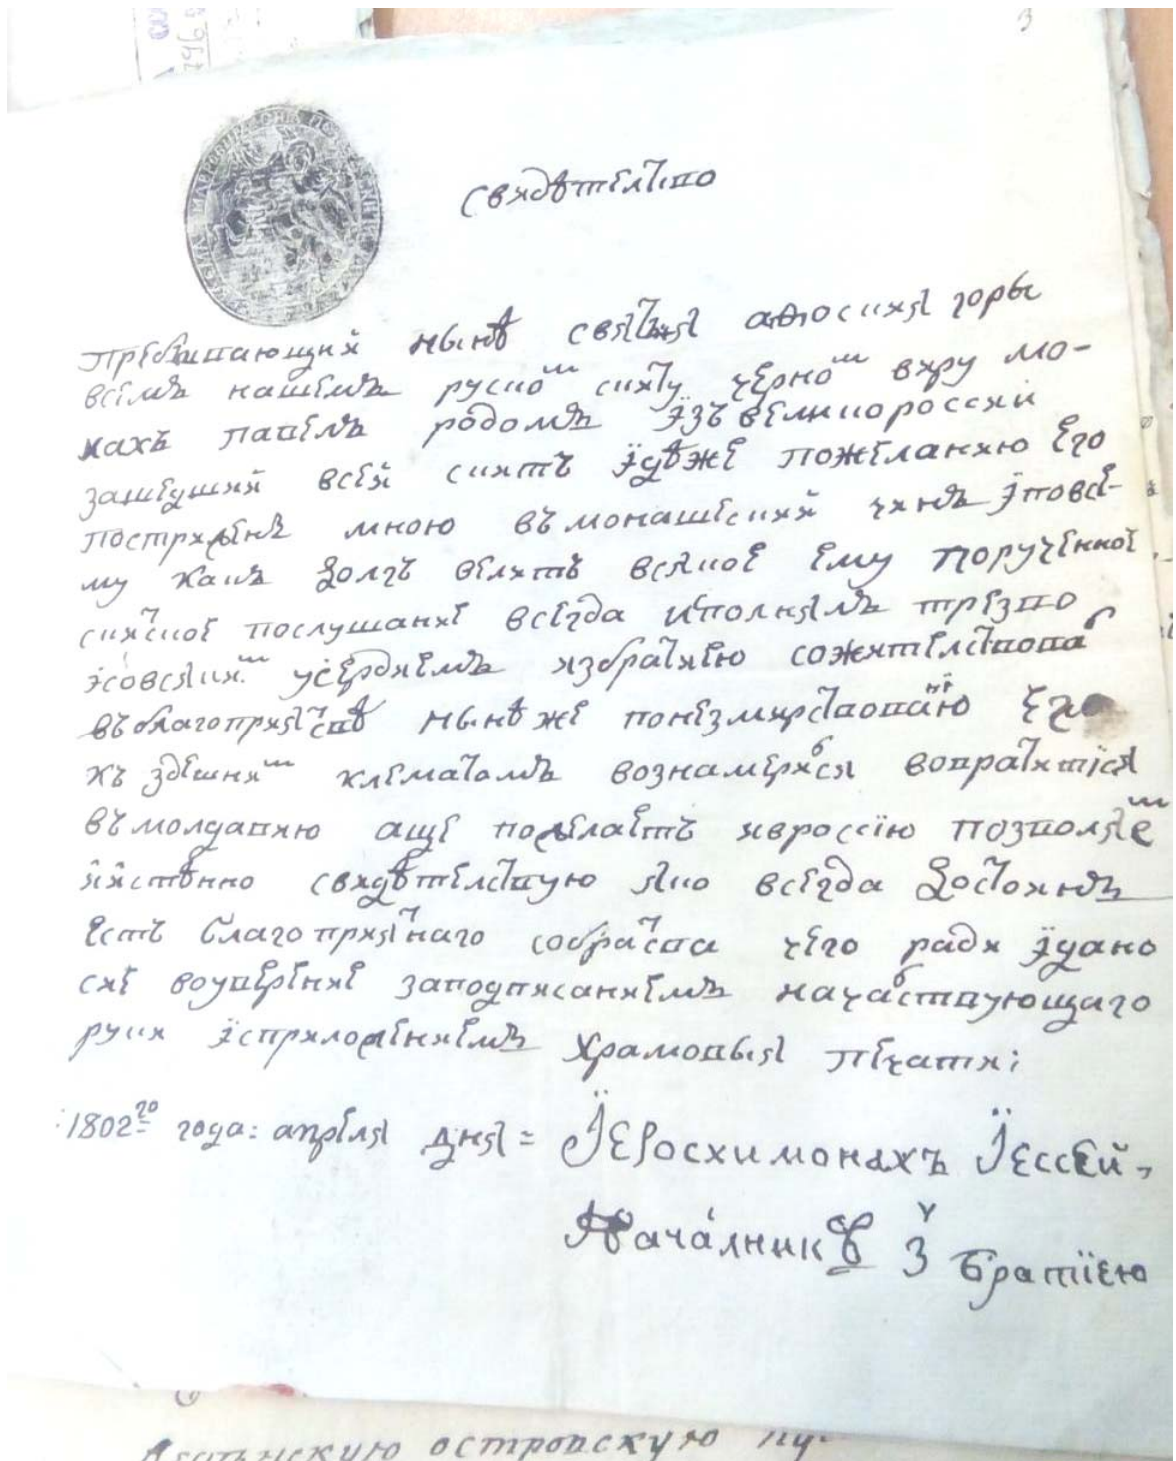 3
свидѣтелство
пребывающий нынѣ святыя афоския горы
всемъ нашемъ руском скиту черном виру мо-
нахъ павелъ родомъ изъ великороссии
зашедший всей скитъ идѣже пожеланию его
пострижен мною въ монашеский чинъ и повсе-
му какъ долгъ велитъ всякое ему порученное
скиское послушание всегда исполнялъ трезво
усердиемъ
въ благоприятствѣ нынѣ же его
къ здешним климатомъ вознамерився возвратитися
въ молдавию аще пожелаетъ и в россию позволяе
свидѣтелствую яко всегда достоинъ
есть благоприятнаго собратсва чего ради и дано
сие воуверение заподписаниемъ начаствующаго
руки и с приложениемъ храмовыя печати;
:1802го года: апреля дня = Їеросхимонахъ Їессей,
Началникъ З братїею
островскую пу-